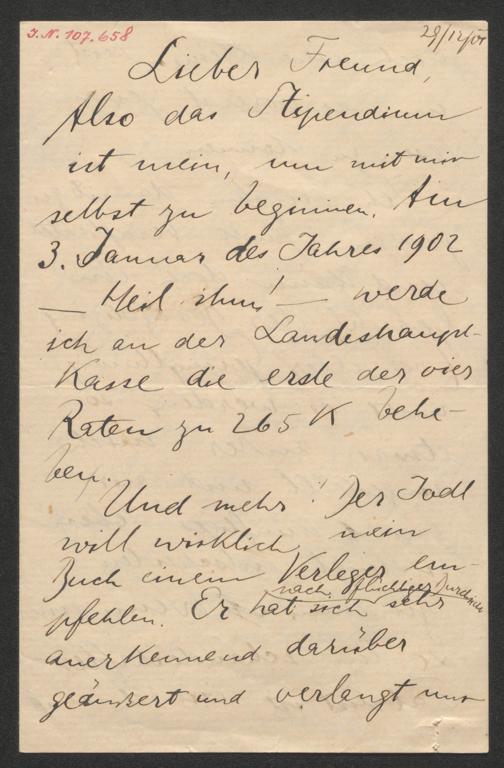 J. N. 107.658
29/12/01
Lieber Freund,
Also das Stipendium
ist mein, um mit mir
selbst zu beginnen. Am
3. Januar des Jahres 1902
— Heil ihm! — werde
ich an der Landeshaupt-
Kasse die erste der vier
Raten zu 265 K behe-
ben.
Und mehr! Der Jodl
will wirklich mein
Buch einem Verleger em-
nach flüchtiger Durchsicht
pfehlen. Er hat sich sehr
anerkennend darüber
geäußert und verlangt nur